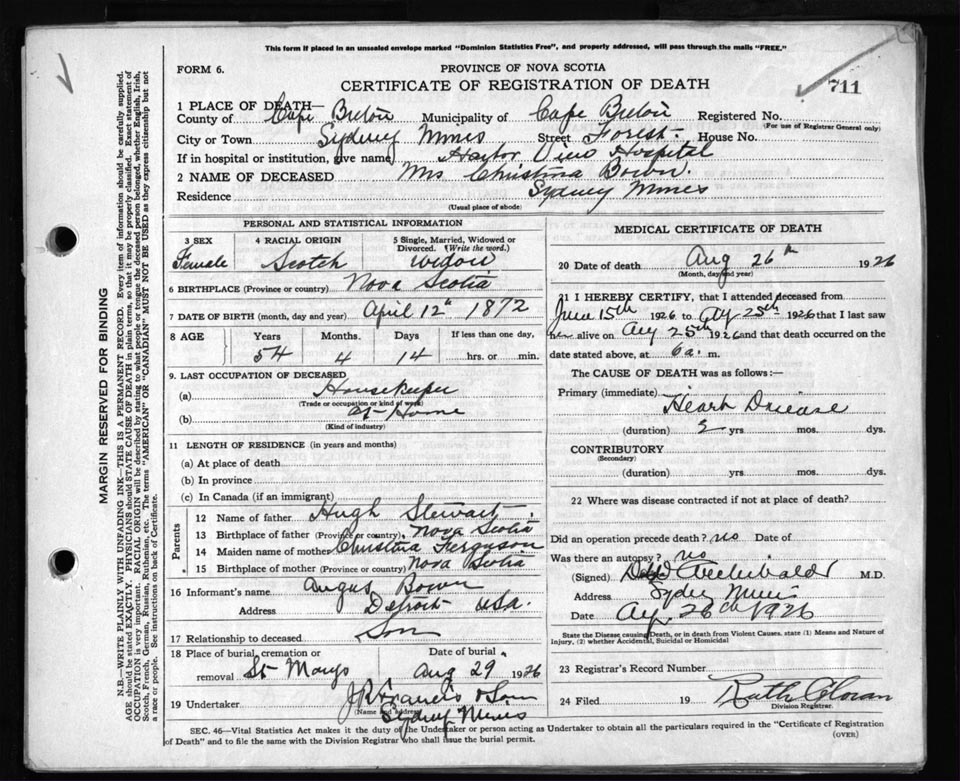 This form if placed in an unsealed envelope marked "Dominion Statistics Free", and properly addressed, will pass through the mails "FREE."
FORM 6.
PROVINCE OF NOVA SCOTIA
CERTIFICATE OF REGISTRATION OF DEATH
711
1 PLACE OF DEATH—
County of Cape Breton Municipality of Cape Breton Registered No.
(For use of Registrar General only)
City or Town Sydney Mines Street Forest House No.
If in hospital or institution, give name Harbor View Hospital
2 NAME OF DECEASED Mrs Christina Bown.
Residence Sydney Mines
(Usual place of abode)
PERSONAL AND STATISTICAL INFORMATION
3 SEX 4 RACIAL ORIGIN 5 Single, Married, Widowed or Divorced. (Write the word.)
Female Scotch widow
6 BIRTHPLACE (Province or country) Nova Scotia
7 DATE OF BIRTH (month, day and year) April 12th 1872
8 AGE Years Months. Days If less than one day,
54 4 14 hrs. or min.
9. LAST OCCUPATION OF DECEASED
(a) Housekeeper
(Trade or occupation or kind of work)
(b) at Home
(Kind of industry)
11 LENGTH OF RESIDENCE (in years and months)
(a) At place of death
(b) In province
(c) In Canada (if an immigrant)
Parents
12 Name of father Hugh Stewart.
13 Birthplace of father (Province or country) Nova Scotia
14 Maiden name of mother Christina Ferguson
15 Birthplace of mother (Province or country) Nova Scotia
16 Informant's name Angus Bown
Address Detroit USA.
17 Relationship to deceased Son
18 Place of burial, cremation or removal St Marys Date of burial Aug 29 1926
19 Undertaker J R Francis & Son
(Name and address)
Sydney Mines
MEDICAL CERTIFICATE OF DEATH
20 Date of death Aug 26th 1926
(Month, day and year)
21 I HEREBY CERTIFY, that I attended deceased from
June 15th 1926 to Aug 25th 1926 that I last saw
her alive on Aug 25th 1926 and that death occurred on the
date stated above, at 6 a. m.
The CAUSE OF DEATH was as follows:—
Primary (immediate) Heart Disease
(duration) 2 yrs. mos. dys.
CONTRIBUTORY
(Secondary)
(duration) yrs. mos. dys.
22 Where was disease contracted if not at place of death?
Did an operation precede death? no Date of
Was there an autopsy? no
(Signed) Archibald M.D.
Address Sydney Mines
Date Aug. 26th 1926
State the Disease causing Death, or in death from Violent Causes, state (1) Means and Nature of
Injury, (2) whether Accidental, Suicidal or Homicidal
23 Registrar's Record Number
24 Filed 19 Ruth
Division Registrar.
SEC. 46—Vital Statistics Act makes it the duty of the Undertaker or person acting as Undertaker to obtain all the particulars required in the "Certificate of Registration
of Death" and to file the same with the Division Registrar who shall issue the burial permit.
(OVER)
MARGIN RESERVED FOR BINDING
N.B.—WRITE PLAINLY WITH UNFADING INK—THIS IS A PERMANENT RECORD. Every item of information should be carefully supplied.
AGE should be stated EXACTLY. PHYSICIANS should STATE CAUSE OF DEATH in plain terms, so that it may be properly classified. Exact statement of
OCCUPATION is very important. RACIAL ORIGIN will be described by stating to what people or tongue the deceased person belonged, whether English, Irish,
Scotch, French, German, Russian, Ruthenian, etc. The terms "AMERICAN" OR "CANADIAN" MUST NOT BE USED as they express citizenship but not
a race or people. See instructions on back of Certificate.